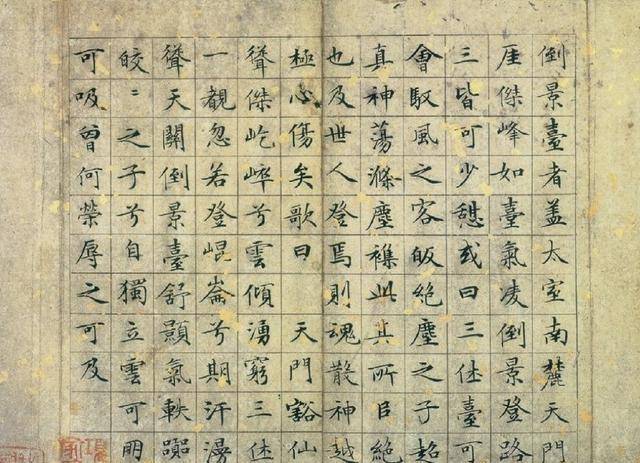 倒景臺者盖太室南麓天門
厓傑峰如臺氣凌倒景登路
三皆可少憩或曰三休臺可
會馭風之客皈絶塵之子超
真神蕩滌塵襍此其所臣絶
也及世人登焉則魂散神越
極心傷矣歌曰 天門豁仙
聳傑屹崒兮雲傾湧窮三休
一覩忽若登崐崙兮期汗漫
聳天關倒景臺舒顥氣軼囂
皎〻之子兮自獨立雲可朋
可吸曾何榮辱之可及